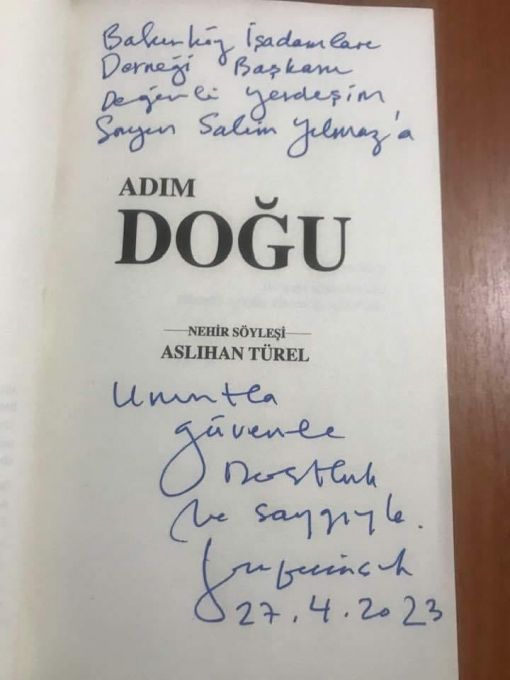 Bakırköy İşadamları
Derneği Başkanı
Değerli Yerdeşim
Sayın Salim Yılmaz'a
ADIM
DOĞU
NEHİR SÖYLEŞİ
ASLIHAN TÜREL
Umutla
güvenle
Dostluk
ve saygıyla.
27.4.2023